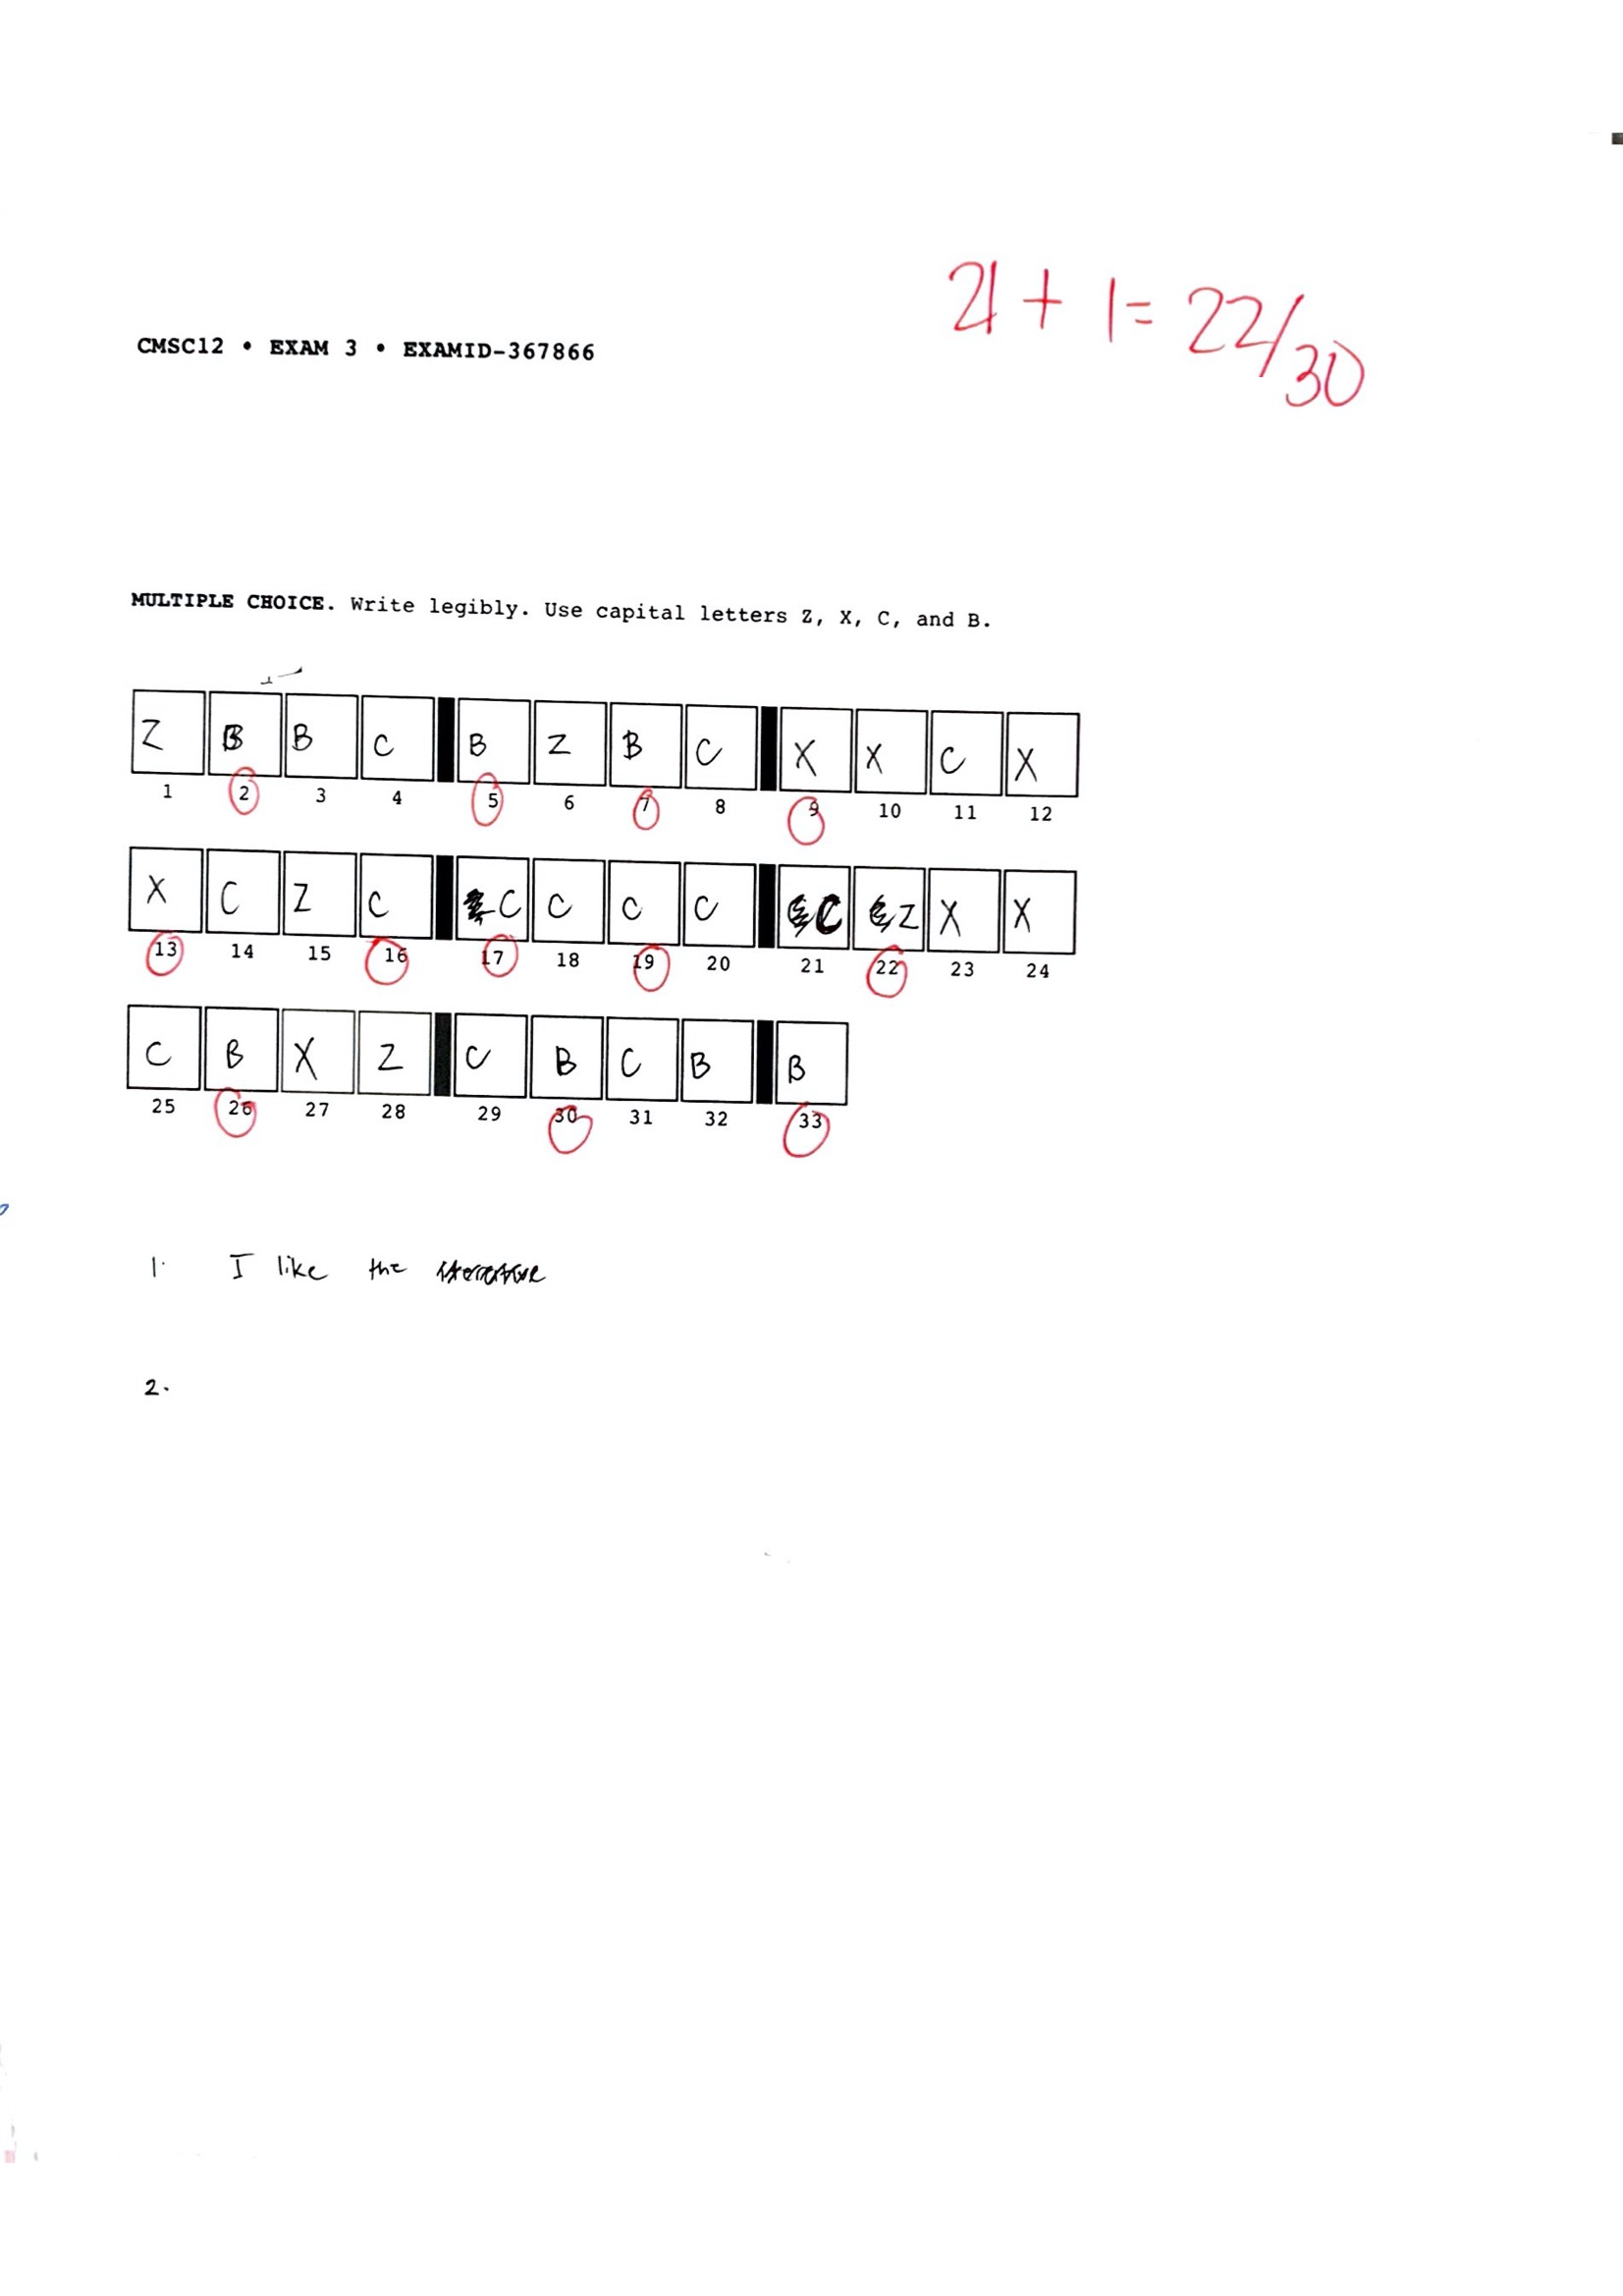 21 + 1 = 22/30
CMSC12 • EXAM 3 • EXAMID-367866
MULTIPLE CHOICE. Write legibly. Use capital letters Z, X, C, and B.
Z B B C B Z B C X X C X
1 2 3 4 5 6 7 8 9 10 11 12
X C Z C C C C C C Z X X
13 14 15 16 17 18 19 20 21 22 23 24
C B X Z C B C B B
25 26 27 28 29 30 31 32 33
1. I like the
2.